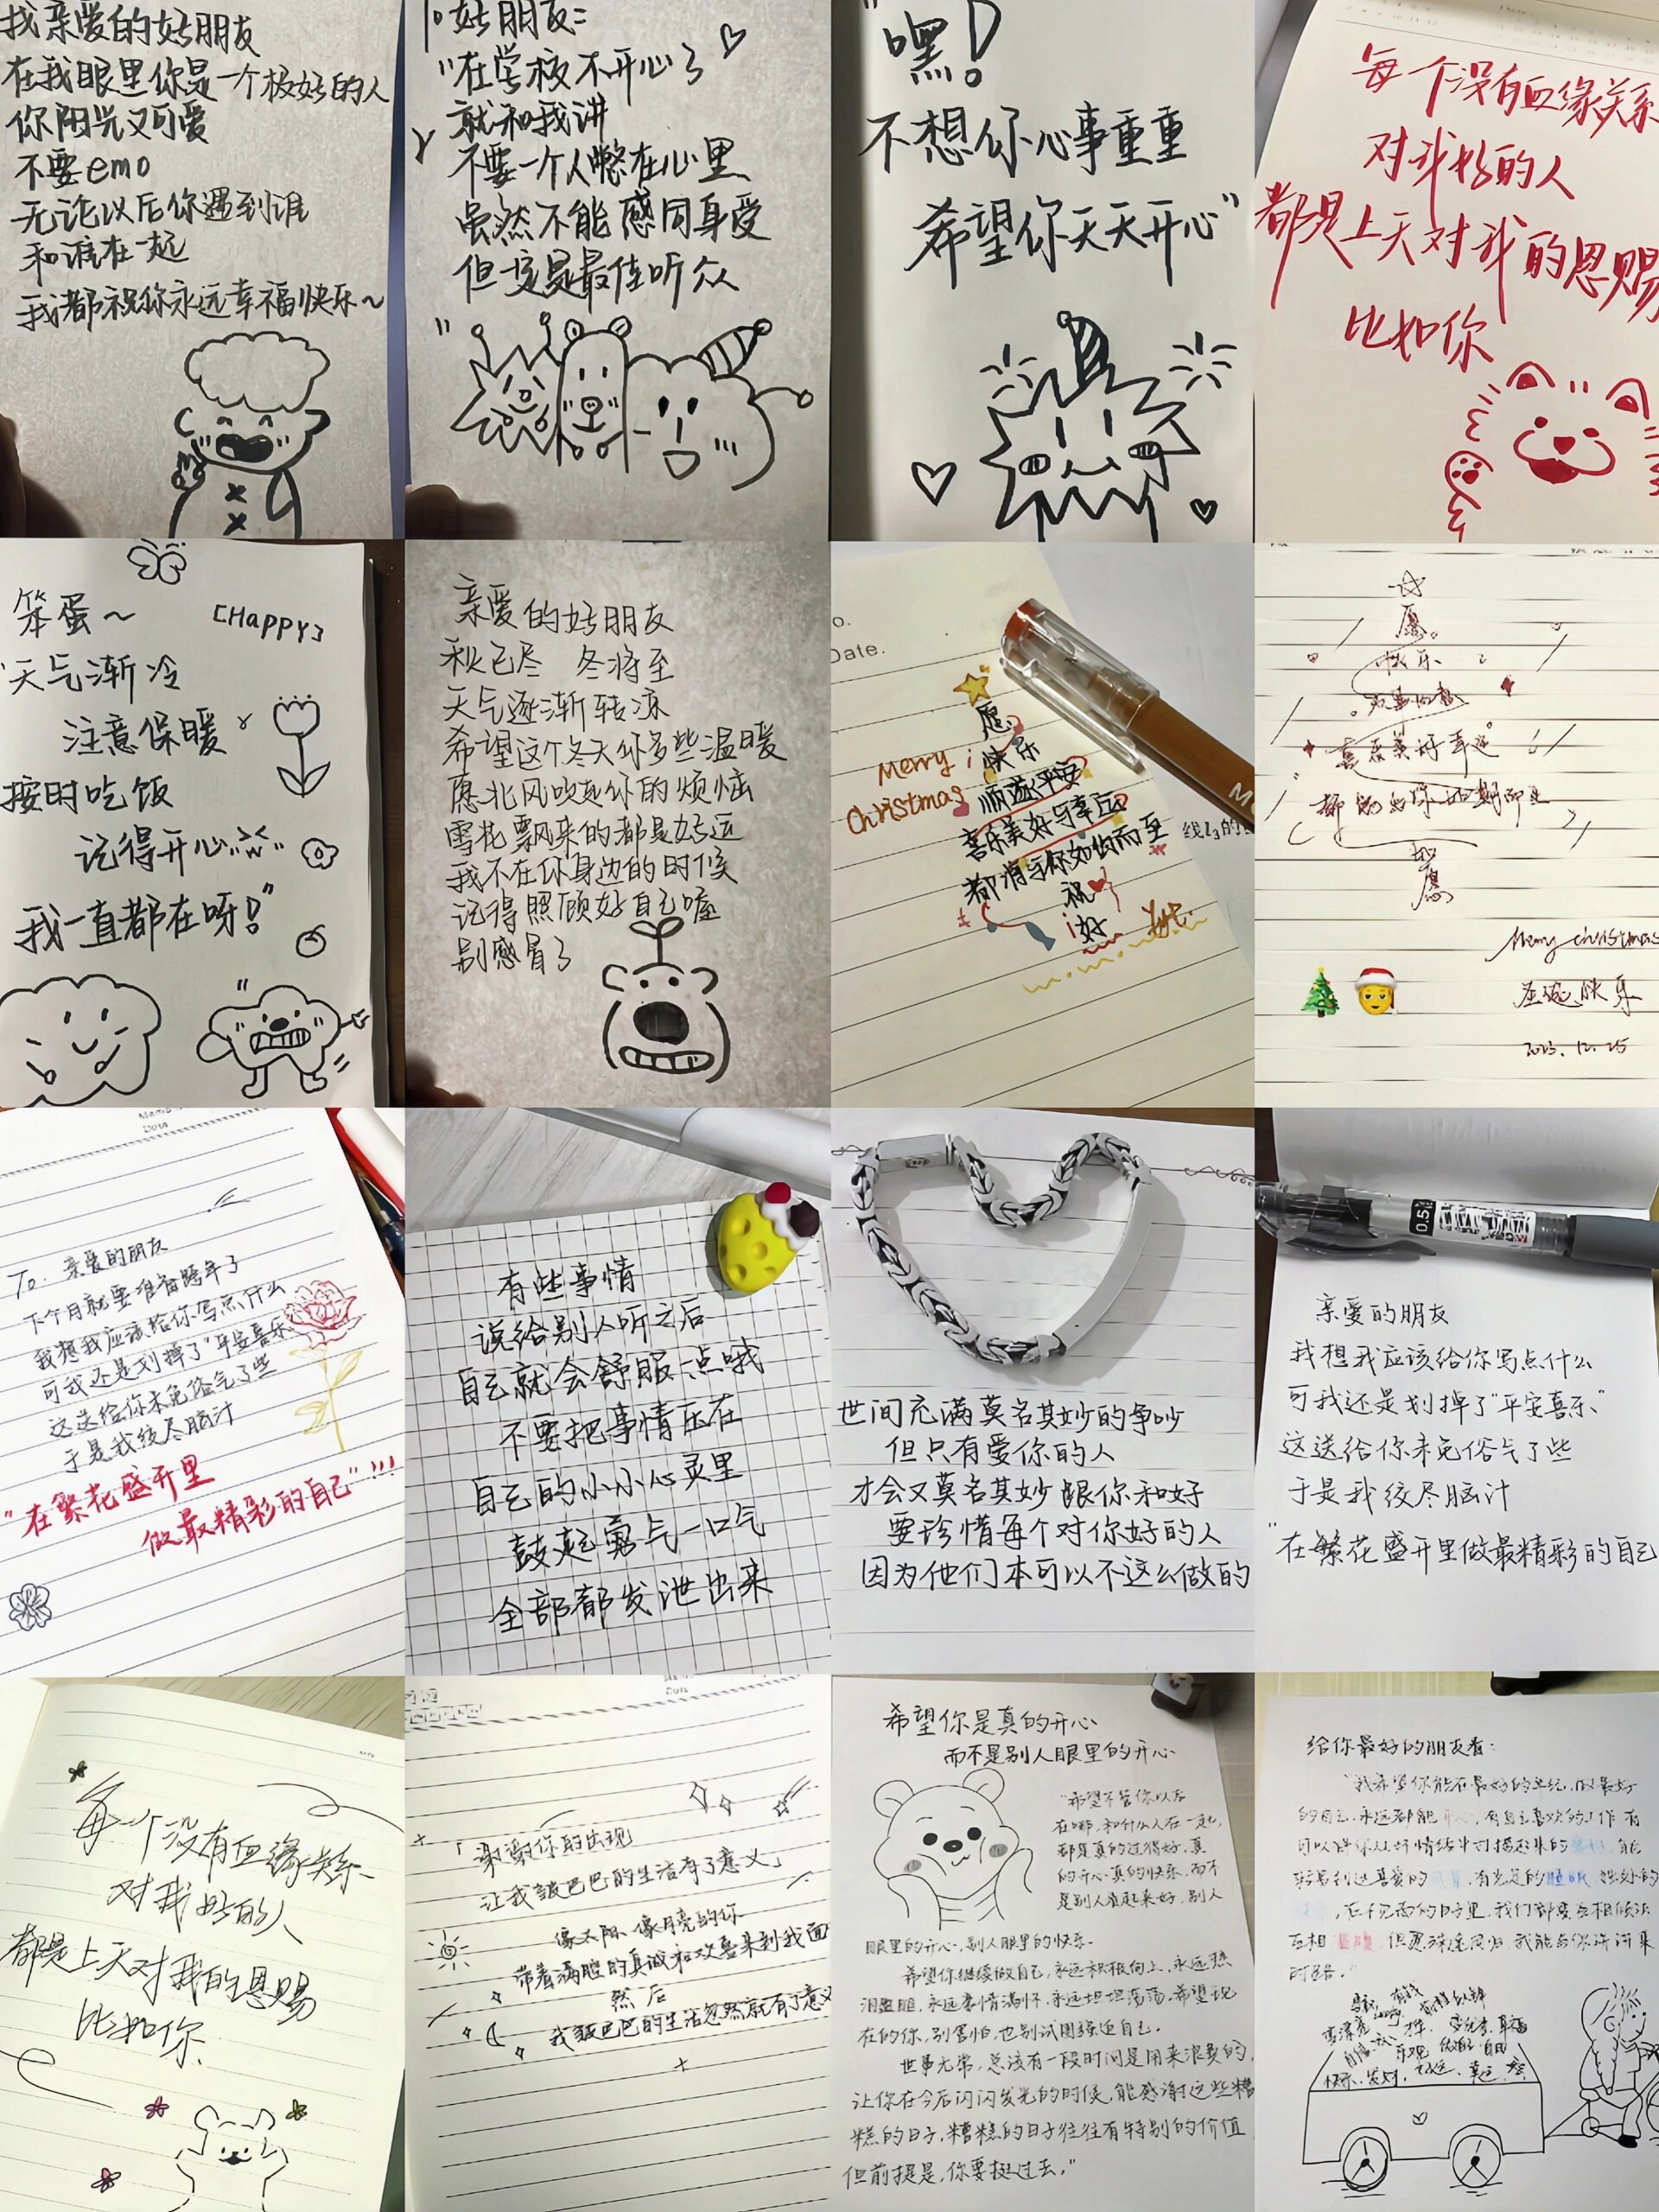 我亲爱的好朋友
在我眼里你是一个极好的人
你阳光又可爱
不要emo
无论以后你遇到谁
和谁在一起
我都祝你永远幸福快乐~
好朋友:
"在学校不开心了
就和我讲
不要一个人憋在心里
虽然不能感同身受
但一定是最佳听众
"嘿!
不想你心事重重
希望你天天开心"
每一个没有血缘关系
对我好的人
都是上天对我的恩赐
比如你
笨蛋~
[Happy]
"天气渐冷
注意保暖
按时吃饭
记得开心
我一直都在呀!"
亲爱的好朋友
秋已尽 冬将至
天气逐渐转凉
希望这个冬天你多些温暖
愿北风吹走你的烦恼
雪花飘来的都是好运
我不在你身边的时候
记得照顾好自己喔
别感冒了
Date.
愿
快乐
Merry
Christmas
顺遂平安
喜乐美好与幸运
都将与你如约而至
祝
好
愿
快乐
喜乐美好幸运
都能
如
愿
Merry christmas
圣诞快乐
2023.12.25
To. 亲爱的朋友
下个月就要准备跨年了
我想我应该给你写点什么
可我还是划掉了"平安喜乐"
这送给你未免俗气了些
于是我绞尽脑汁
"在繁花盛开里
做最精彩的自己"!!!
有些事情
说给别人听之后
自己就会舒服一点哦
不要把事情压在
自己的小小心灵里
鼓起勇气一口气
全部都发泄出来
世间充满莫名其妙的争吵
但只有爱你的人
才会又莫名其妙跟你和好
要珍惜每个对你好的人
因为他们本可以不这么做的
0.5
亲爱的朋友
我想我应该给你写点什么
可我还是划掉了"平安喜乐"
这送给你未免俗气了些
于是我绞尽脑汁
"在繁花盛开里做最精彩的自己
每一个没有血缘关系
对我好的人
都是上天对我的恩赐
比如你
「谢谢你的出现
让我皱巴巴的生活有了意义」
像太阳、像月亮的你
带着满腔的真诚和欢喜来到我面
然后
我皱巴巴的生活忽然就有了意义
希望你是真的开心
而不是别人眼里的开心
"希望不管你以后
在哪,和什么人在一起,
都是真的过得好,真
的开心真的快乐,而不
是别人看起来好,别人
眼里的开心,别人眼里的快乐。
希望你继续做自己,永远积极向上,永远热
泪盈眶,永远豪情满怀,永远坦坦荡荡,希望现
在的你,别害怕,也别试图强迫自己。
世事无常,总该有一段时间是用来浪费的,
让你在今后闪闪发光的时候,能感谢这些糟
糕的日子,糟糕的日子往往有特别的价值
但前提是,你要挺过去。"
给你最好的朋友看:
"我希望你能在最好的年纪,做最好
的自己,永远都能开心,有自己喜欢的工作,有
可以让你从坏情绪中打捞起来的
有充足的睡眠
在不见面的日子里,我们都要互相倾诉
互相
时差。"